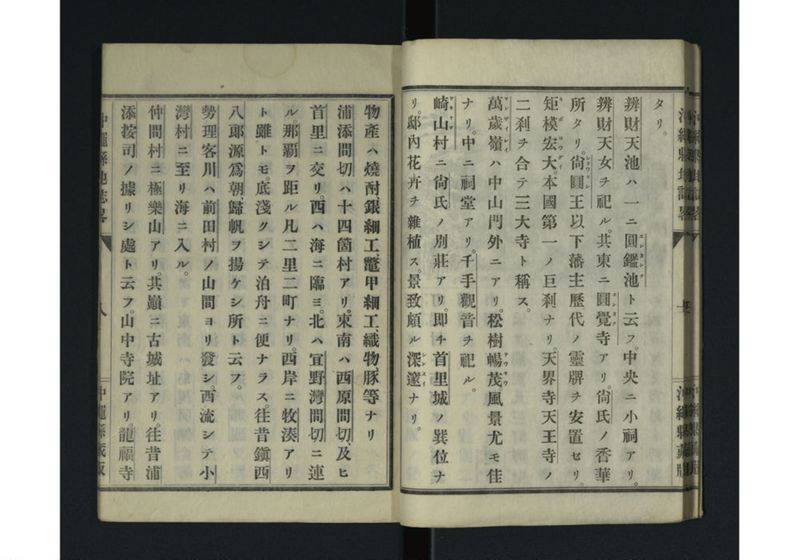 タリ。
辨財天池ハ一ニ圓鑑池ト云フ。中央ニ小祠アリ。
辨財天女ヲ祀ル。其東ニ圓覺寺アリ。尙氏ノ香華
所タリ。尙圓王以下藩主歷代ノ靈牌ヲ安置セリ。
矩模宏大。本國第一ノ巨刹ナリ天界寺天王寺ノ
二刹ヲ合テ三大寺ト稱ス。
萬歲嶺ハ中山門外ニアリ。松樹暢茂風景尤モ佳
ナリ。中ニ祠堂アリ。千手觀音ヲ祀ル。
崎山村ニ尙氏ノ別莊アリ。卽チ首里城ノ巽位ナ
リ。邸內花卉ヲ雜植ス。景致頗ル深邃ナリ。
物產ハ燒酎銀細工鼈甲細工織物豚等ナリ
浦添間切ハ十四箇村アリ。東南ハ西原間切及ヒ
首里ニ交リ西ハ海ニ臨ミ。北ハ宜野灣間切ニ連
ル那覇ヲ距ル凡二里二町ナリ。西岸ニ牧湊アリ
ト雖トモ。底淺クシテ泊舟ニ便ナラス往昔鎭西
八郞源爲朝歸帆ヲ揚ケシ所ト云フ。
勢理客川ハ前田村ノ山間ヨリ發シ。西流シテ小
灣村ニ至リ海ニ入ル。
仲間村ニ極樂山アリ。其巓ニ古城址アリ。往昔浦
添按司ノ據リシ處ト云フ。山中寺院アリ。龍福寺
沖繩縣地誌畧
八
沖繩縣藏版